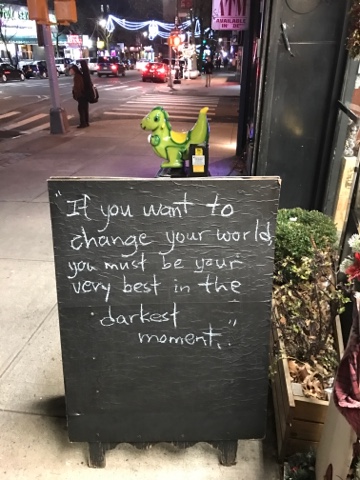 AVAILABLE
"If you want to
change your world,
you must be your
very best in the
darkest
moment."